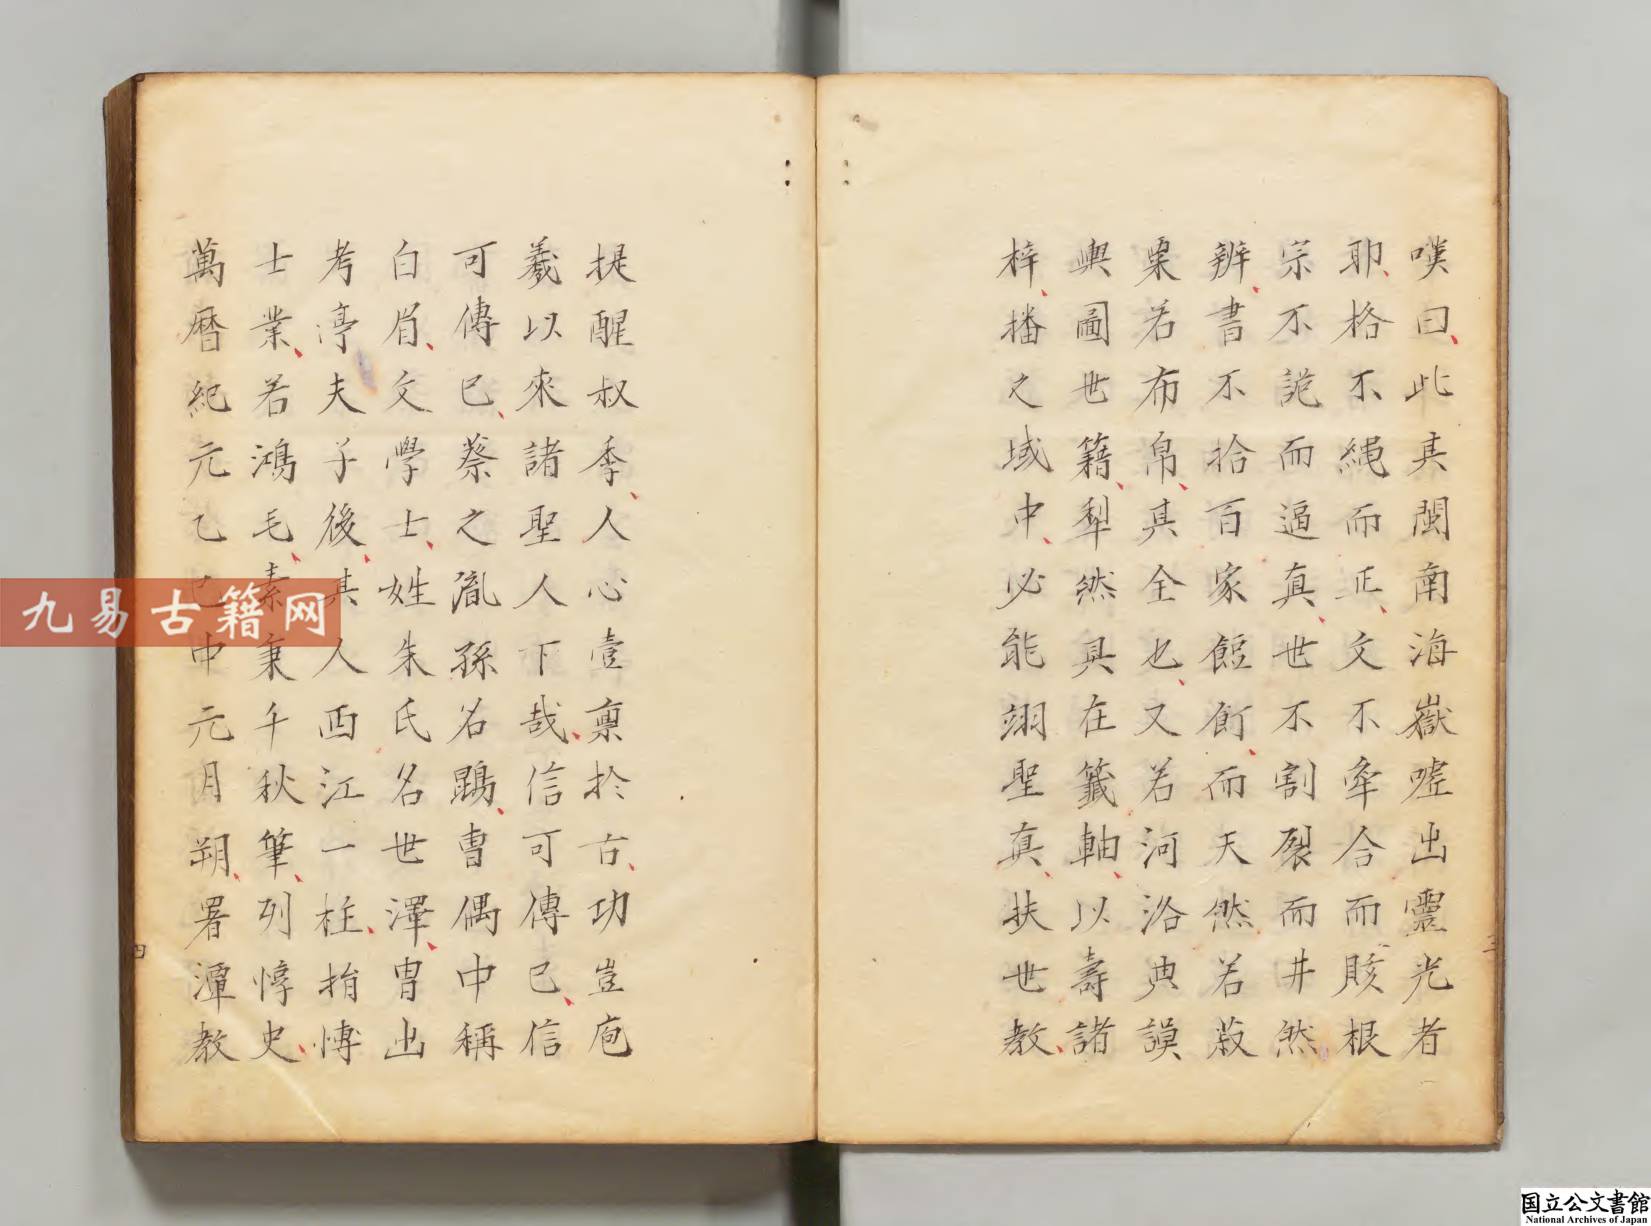 嘆曰此真閩南海嶽噓出靈光者
耶格不繩而正文不牽合而賅根
宗不詭而逼真世不割裂而井然
辨書不拾百家餖飣而天然若菽
粟若布帛真全也又若河洛典謨
輿圖世籍犁然具在籤軸以壽諸
梓播之域中必能翊聖真扶世教
提醒叔季人心壹稟於古功豈庖
羲以來諸聖人下哉信可傳已信
可傳已蔡之胤孫名鵾曹偶中稱
白眉文學士姓朱氏名世澤胄出
考亭夫子後真人西江一柱指慱
士業若鴻毛素秉千秋筆列惇史
萬曆紀元乙巳中元月朔署潭教
三
四
九易古籍网
国立公文書館
National Archives of Japan